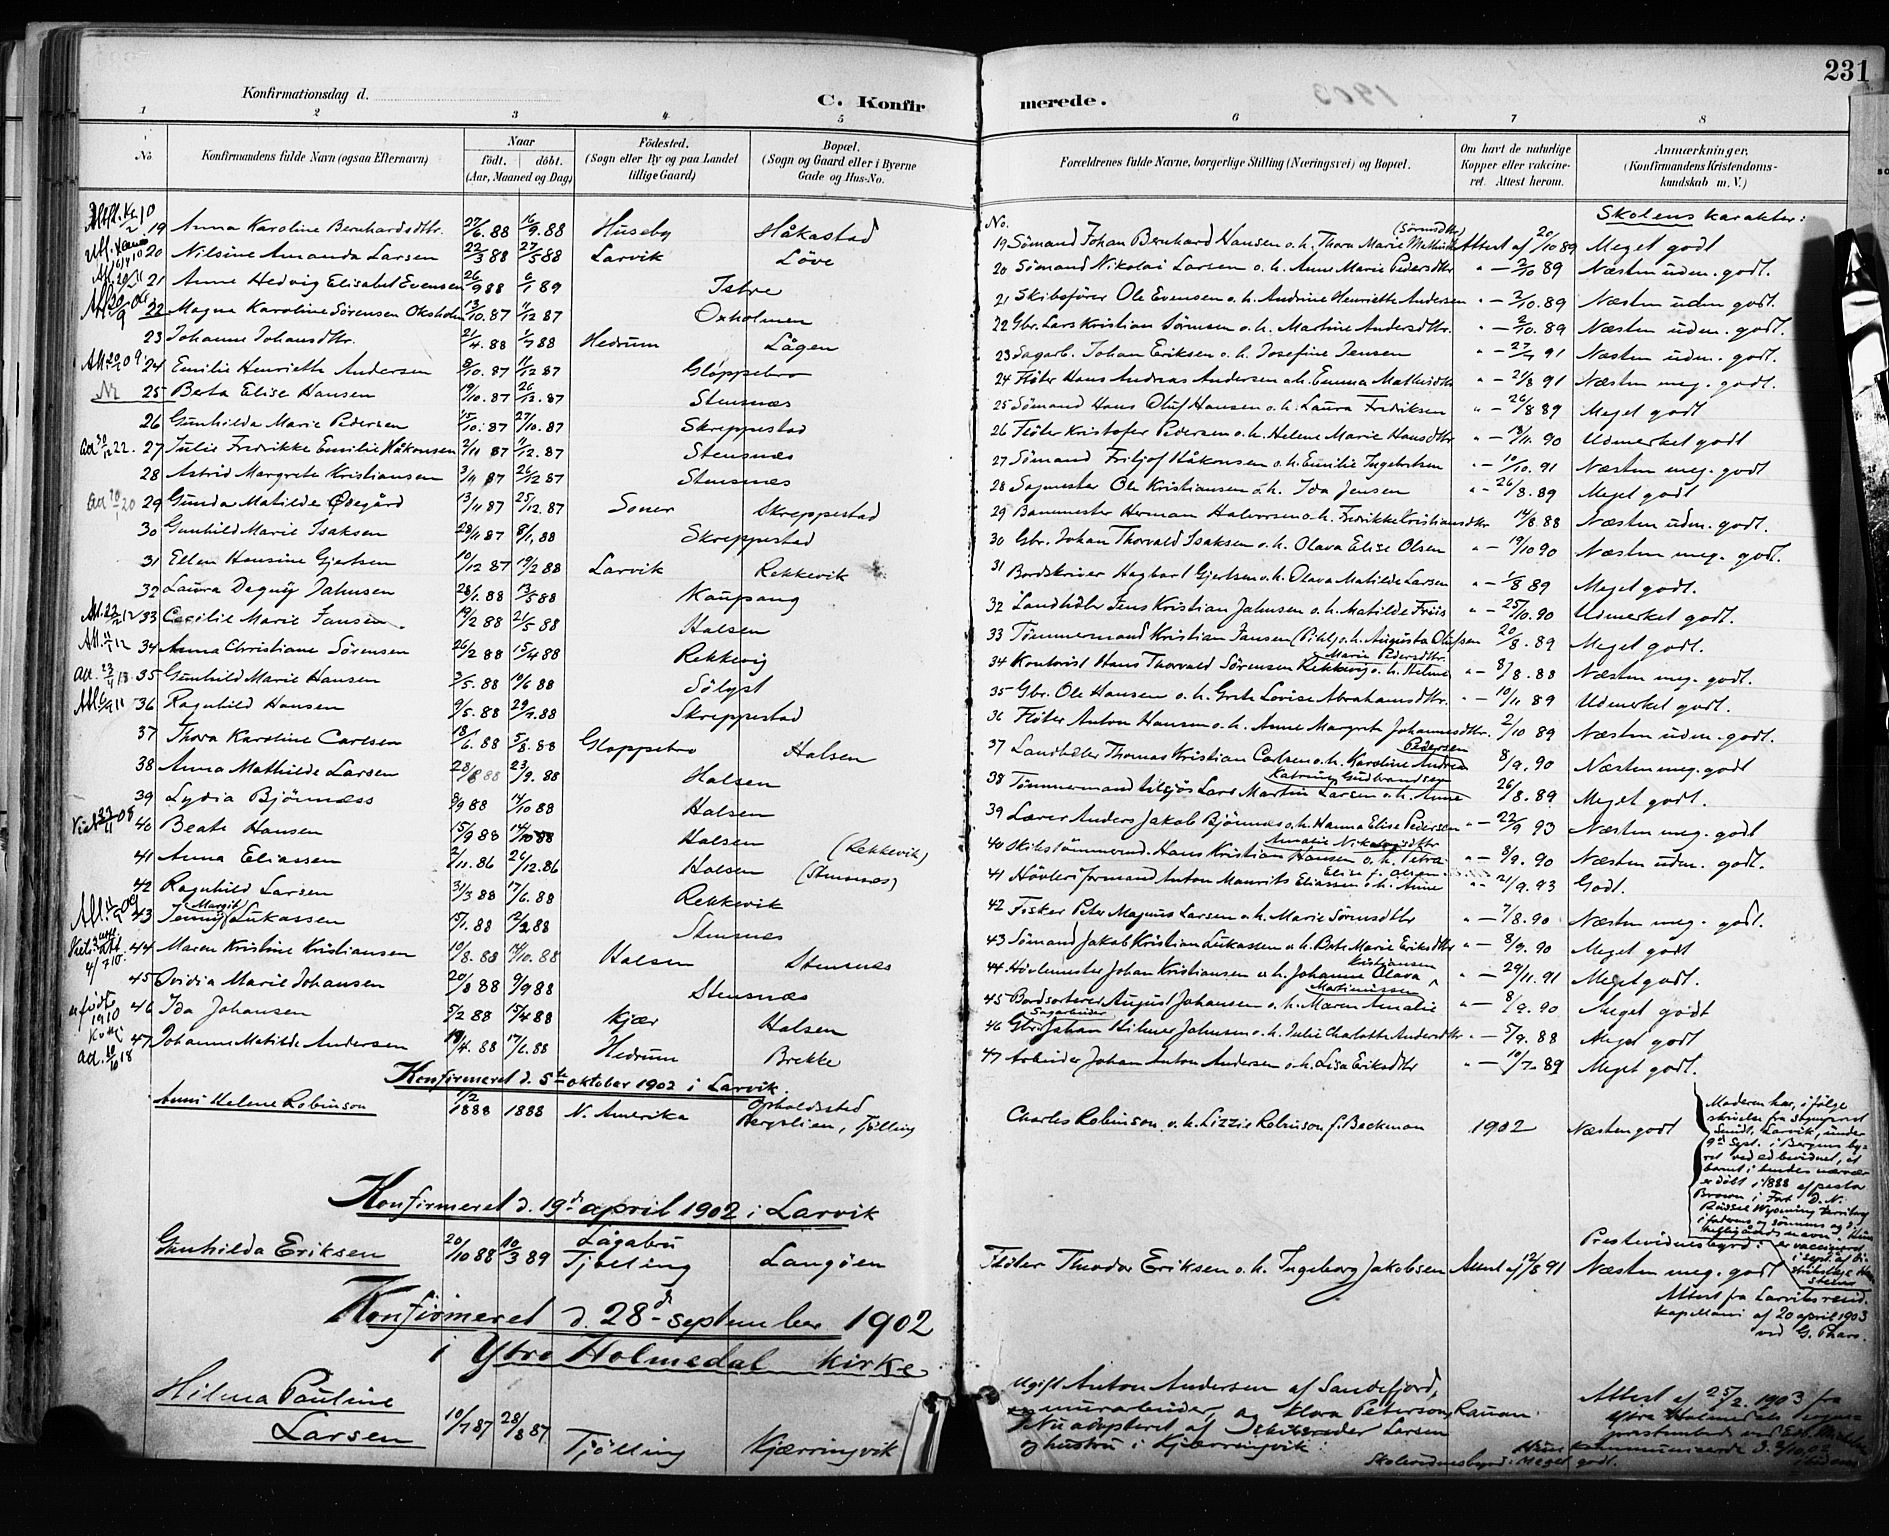 231
Konfirmationsdag d.
C. Konfirmerede.
1 2 3 4 5 6 7 8
No. Konfirmandens fulde Navn (ogsaa Efternavn) Naar født. døbt. (Aar, Maaned og Dag) Födested. (Sogn eller By og paa Landet tillige Gaard) Bopæl. (Sogn og Gaard eller i Byerne Gade og Hus-No. Forældrenes fulde Navne, borgerlige Stilling (Næringsvei) og Bopæl. Om havt de naturlige Kopper eller vakcineret. Attest herom. Anmærkninger, (Konfirmandens Kristendomskundskab m. V.)
Skolens karakter:
19 Anna Karoline Bernhardsdtr. 27/6. 88 16/9. 88 Huseby Håkastad 19 Sømand Johan Bernhard Hansen o. h. Thora Marie Attest af 20/10 89 Meget godt
20 Nilsine Amanda Larsen 22/3 88 27/5 88 Larvik Löve 20 Sømand Nikolai Larsen o. h. Anne Marie Pedersdtr " — 89 Næsten udm. godt.
21 Anne Hedvig Elisabet Evensen 26/9 88 6/1 89 Istre 21 Skibsfører Ole Evensen o. h. Andrine Henriette Andersen " — /10. 89 Næsten udm godt.
22 Magna Karoline Sörensen Oksholm 13/10. 87 11/12 87 Oxholmen 22 Gbr. Lars Kristian Sørensen o. h. Martine Andersdtr. " — /10. 89 Næsten udm. godt.
23 Johanne Johansdtr. 21/4. 88 1/7 88 Hedrum Lågen 23 Sagarb. Johan Eriksen o. h. Josefine Jensen " — 91 Næsten udm. godt.
24 Emilie Henriette Andersen 8/10. 87 11/12 87 Gloppebro 24 Fløter Hans Andreas Andersen o. h. Emma " — 21/8 91 Næsten meg. godt.
25 Berta Elise Hansen 19/10. 87 26/12. 87 Stensnæs 25 Sømand Hans Oluf Hansen o. h. Laura Fredriksen " — 26/8 89 Meget godt
26 Gunhilda Marie Pedersen 15/10. 87 27/10. 87 Skreppestad 26 Fløter Kristofer Pedersen o. h. Helene Marie Hansdtr " — 18/11. 90 Udmerket godt
27 Julie Fredrikke Emilie Håkonsen 2/11 87 11/12. 87 Stensnæs 27 Sømand Fritjof Håkonsen o. h. Emilie " — 10/10. 91 Næsten meg. godt
28 Astrid Margrete Kristiansen 3/11 87 26/12 87 Stensnæs 28 Sagmester Ole Kristiansen o. h. Ida Jensen " — 26/8. 89 Meget godt
29 Gunda Matilde Ødegård 13/11 87 25/12. 87 Skreppestad 29 Banemester Herman Halvorsen o. h. Fredrikke Kristiansdtr 14/8. 88 Næsten udm. godt.
30 Gunhild Marie Isaksen 28/11 87 8/1. 88 Skreppestad 30 Gbr. Johan Thorvald Isaksen o. h. Olava Elise Olsen " — 19/10 90 Næsten meg. godt.
31 Ellen Hansine Gjertsen 10/12 87 19/2 88 Larvik Rekkevik 31 Bordskriver Hagbart Gjertsen o. h. Olava Matilde Larsen " — /8 89 Meget godt.
32 Laura Dagny Jahnsen 28/1. 88 13/5 88 Kaupang 32 Landhdlr Jens Kristian Jahnsen o. h. Matilde Friis " — 25/10. 90 Udmerket godt.
33 Cecilie Marie Jansen. 19/2 88 21/5. 88 Halsen 33 Tømmermand Kristian Jansen (Pihl) o. h. Augusta Olufsen 20/8. 89 Meget godt.
34 Anna Christiane Sörensen 26/2 88 15/4 88 Rekkevig 34 Kontorist Hans Thorvald Sörensen Rekkevig o. h. Marie Pedersdtr. " — 8/8. 88 Næsten meg. godt.
35 Gunhild Marie Hansen 3/5. 88 10/6 88 Sölyst 35 Gbr. Ole Hansen o. h. Grete Lovise Abrahamsdtr. " — 10/11. 89 Udmerket godt.
36 Ragnhild Hansen 9/5. 88 29/7. 88 Skreppestad 36 Fløter Anton Hansen o. h. Anne Margrete Johannesdtr. " — 2/10 89 Næsten udm. godt.
37 Thora Karoline Carlsen 18/6. 88 5/8. 88 Gloppebro Halsen 37 Landhdler Thomas Kristian Carlsen o. h. Karoline Andrea Pedersen 8/9. 90 Næsten meg. godt
38 Anna Mathilde Larsen 28/8 88 23/9. 88 Halsen 38 Tømmermand Lars Martin Larsen o. h. Anne Katrine Gudbrandsen 26/8. 89 Meget godt.
39 Lydia Bjönnæss 8/9 88 14/10 88 Halsen 39 Lærer Anders Jakob Bjönnes o. h. Hanna Elise Pedersen " — 22/9 93 Næsten meg. godt
40 Beate Hansen 15/9 88 14/10 88 Halsen (Rekkevik) 40 Skibstömmermd. Hans Kristian Hansen o. h. Petra Amalie " — 8/9. 90 Næsten udm. godt.
41 Anna Eliassen 2/11. 86 26/12. 86 Halsen (Stensnæs) 41 Høvleriformand Anton Maurits Eliassen o. h. Anne Elise f. Olsen " — 21/9. 93 Godt.
42 Ragnhild Larsen 31/3 88 17/6. 88 Rekkevik 42 Fisker Peter Magnus Larsen o. h. Marie Sörensdtr " — 7/8. 90 Næsten meg. godt.
43 Jenny (Margit) Lukassen 15/1. 88 12/2 88 Stensnæs 43 Sømand Jakob Kristian Lukassen o. h. Marie Eriksdtr " — 8/9. 90 Meget godt
44 Maren Kristine Kristiansen 10/8. 88 14/10. 88 Halsen Stensnæs 44 Høvlemester Johan Kristiansen o. h. Johanne Olava Kristiansen " — 29/11. 91 Meget godt.
45 Marie Johansen 20/8 88 9/9 88 Stensnæs 45 Bordsorterer August Johansen o. h. Maren Amalie Martinissen " — 8/9. 90 Meget godt
46 Ida Johansen 5/2 88 15/4 88 Kjær Halsen 46 Sagarbeider Johan Hilmer Jahnsen o. h. Julie Charlotte Andersdtr. " — 5/9. 88 Meget godt
47 Johanne Matilde Andersen 19/4. 88 17/6. 88 Hedrum Brekke 47 Arbeider Johan Anton Andersen o. h. Lisa Eriksdtr " — 10/7. 89 Meget godt.
Konfirmeret d. 5te oktober 1902 i Larvik.
Anni Helene Robinson 1/2 1888 1888 N. Amerika Opholdssted Bergslien, Tjölling Charles Robinson o. h. Lizzie Robinson f. Beckman 1902 Næsten godt
Moderen har, i følge skrivelse fra sognepræst Smidt, Larvik, under 9de Sept. i Bergens byret ved ed bevidnet, at barnet i hendes nærvær er døbt i 1888 af pastor Brown i Fort D. N. Russel Wyoming Territory
Konfirmeret d. 19de april 1902 i Larvik
Gunhilda Eriksen 20/10 88 10/3 89 Lågabru Tjölling Langöen Fløter Theodor Eriksen o. h. Ingeborg Jakobsen Attest af 12/8 91 Prestevidnesbyrd: Næsten meg. godt
Attest fra Larviks resid. kapellani af 20 april 1903 ved G.
Konfirmeret d. 28de september 1902
i Ytre Holmedal kirke
Hilma Pauline Larsen 10/7 87 28/8 87 Tjölling Kjærringvik
Ugift Anton Andersen af Sandefjord,
murarbeider, og Klara Peterson, Rauan.
Nu adopteret af Larsen
og hustru i Kjærringvik.
Attest af 25/2. 1903 fra
Ytre Holmedals sogneprestembede
kommunicerede d. 5/10. 02
Skolevidnesbyrd: Meget godt.